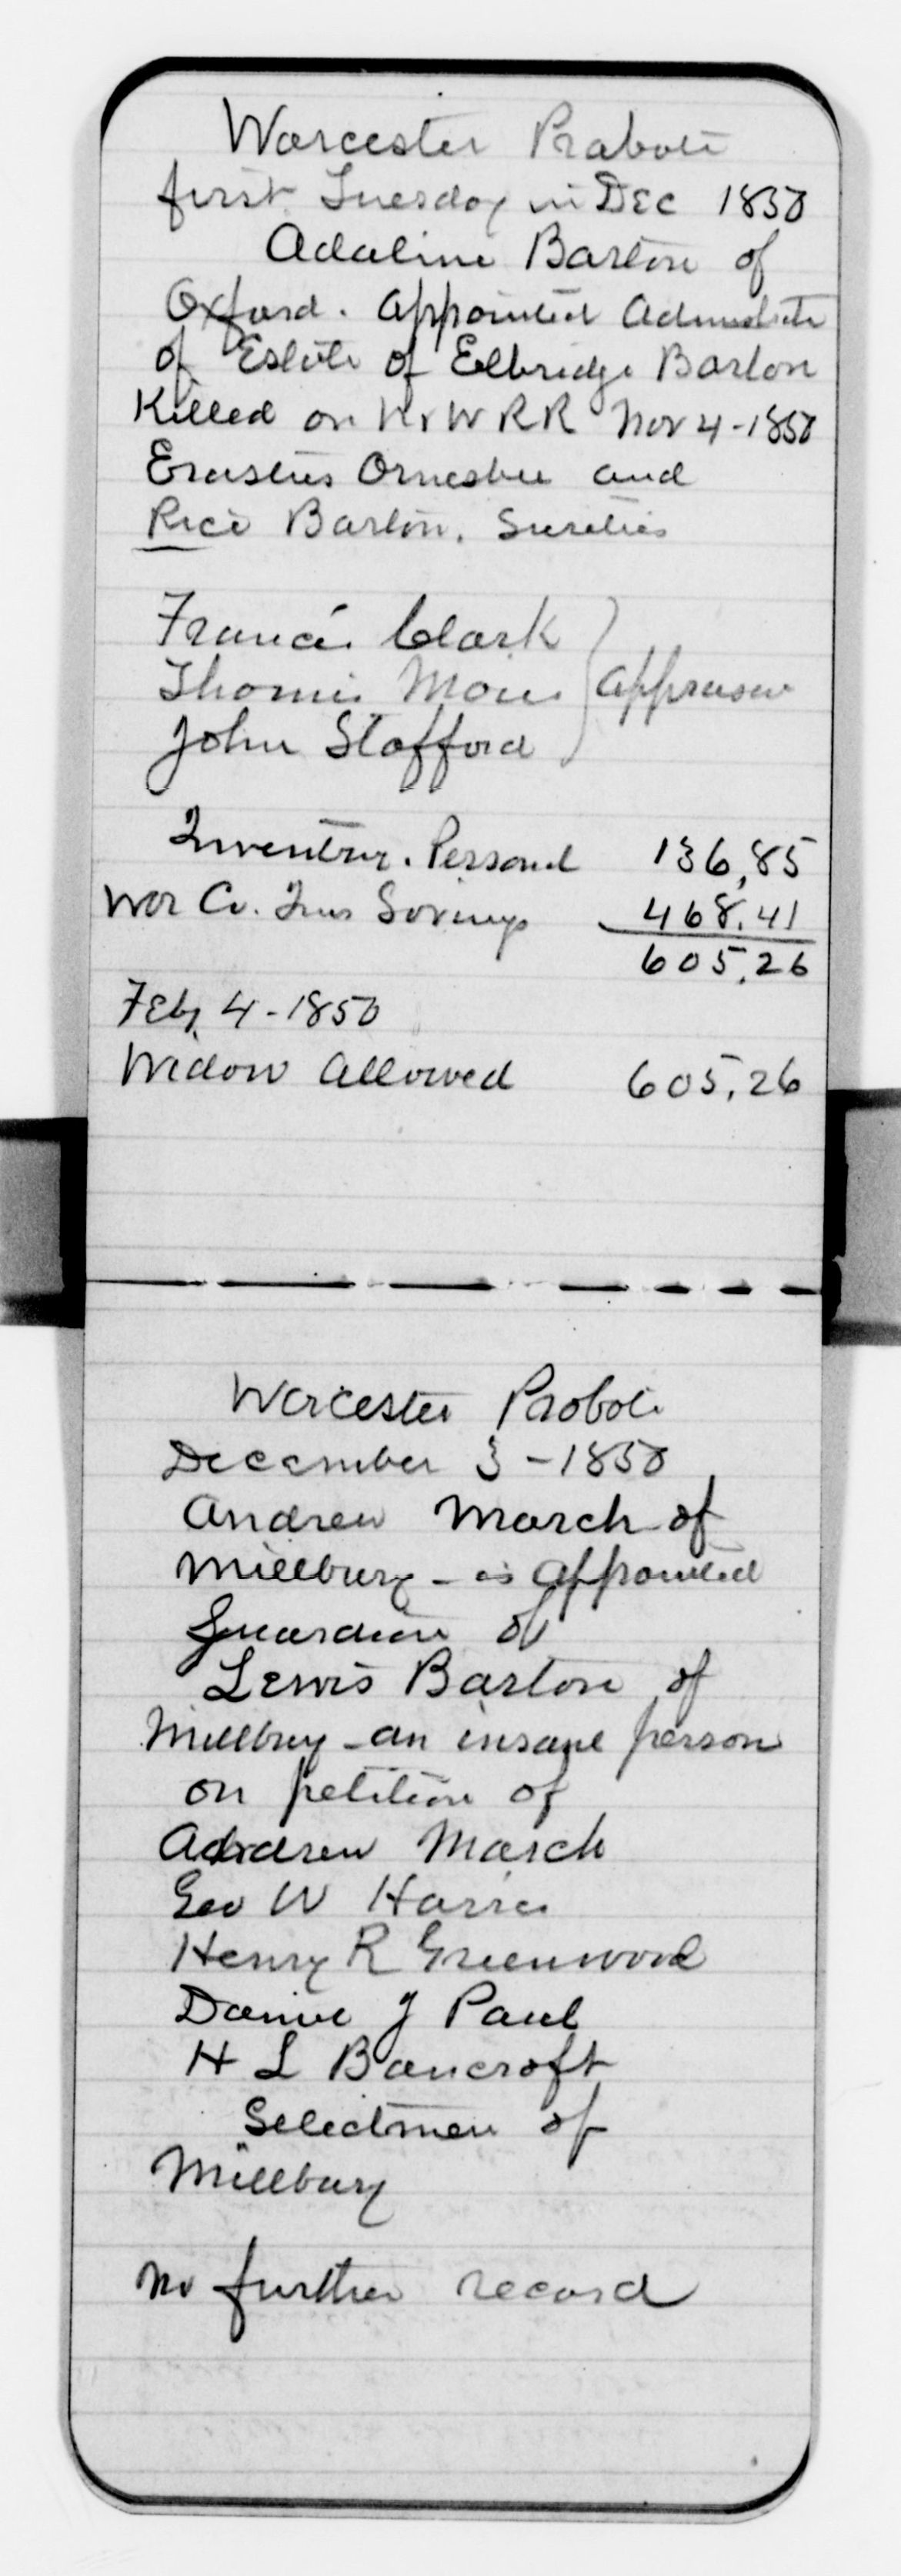 Worcester Probate
first Tuesday in Dec 1850
Adaline Barton of
Oxford. Appointed
of Estate of Elbridge Barton
Killed on N & W RR Nov 4-1850
Erastus Ormsbee and
Rice Barton. Sureties
Francis Clark
Thomas
John Stafford
Appraiser
Inventory. Personal 136,85
Wor Co. Ins Savings 468.41
605.26
Feb 4-1850
Widow allowed 605.26
Worcester Probate
December 3-1850
Andrew March of
Millbury - is appointed
Guardian of
Lewis Barton of
Millbury - an insane person
on petition of
Andrew March
Geo W Harris
Henry R Greenwood
Daniel J Paul
H L Bancroft
Selectmen of
Millbury
No further record